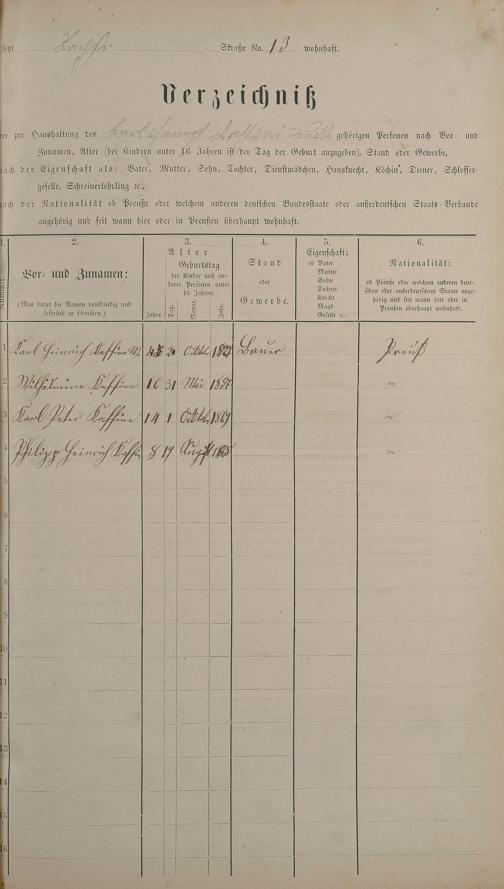 Jetzt Straße No. 13 wohnhaft.
Verzeichniß
der zur Haushaltung des gehörigen Personen nach Vor- und
Zunamen, Alter (bei Kindern unter 16 Jahren ist der Tag der Geburt anzugeben), Stand oder Gewerbe,
nach der Eigenschaft als: Vater, Mutter, Sohn, Tochter, Dienstmädchen, Hausknecht, Köchin, Diener, Schlosser-
geselle, Schreinerlehrling ꝛc.,
nach der Nationalität ob Preuße oder welchem anderen deutschen Bundesstaate oder außerdeutschen Staats-Verbande
angehörig und seit wann hier oder in Preußen überhaupt wohnhaft.
1. 2. 3. 4. 5. 6.
Nummer.
Vor- und Zunamen:
(Man bittet die Namen vollständig und
leserlich zu schreiben.)
Alter
Geburtstag
der Kinder und an-
derer Personen unter
16 Jahren.
Jahre. Tag. Monat. Jahr.
Stand
oder
Gewerbe.
Eigenschaft:
ob Vater
Mutter
Sohn
Tochter
Knecht
Magd
Geselle ꝛc.
Nationalität:
ob Preuße oder welchem anderen deut-
schen oder außerdeutschen Staate ange-
hörig und seit wann hier oder in
Preußen überhaupt wohnhaft.
1 Karl Heinrich 20 Oktbr Bauer Preuß
2 Wilhelmine Kaffine 16 31 Mai "
3 Karl Peter Kaffine 14 1 Oktbr "
4 Philipp Heinrich 8 August "
5
6
7
8
9
10
11
12
13
14
15
16